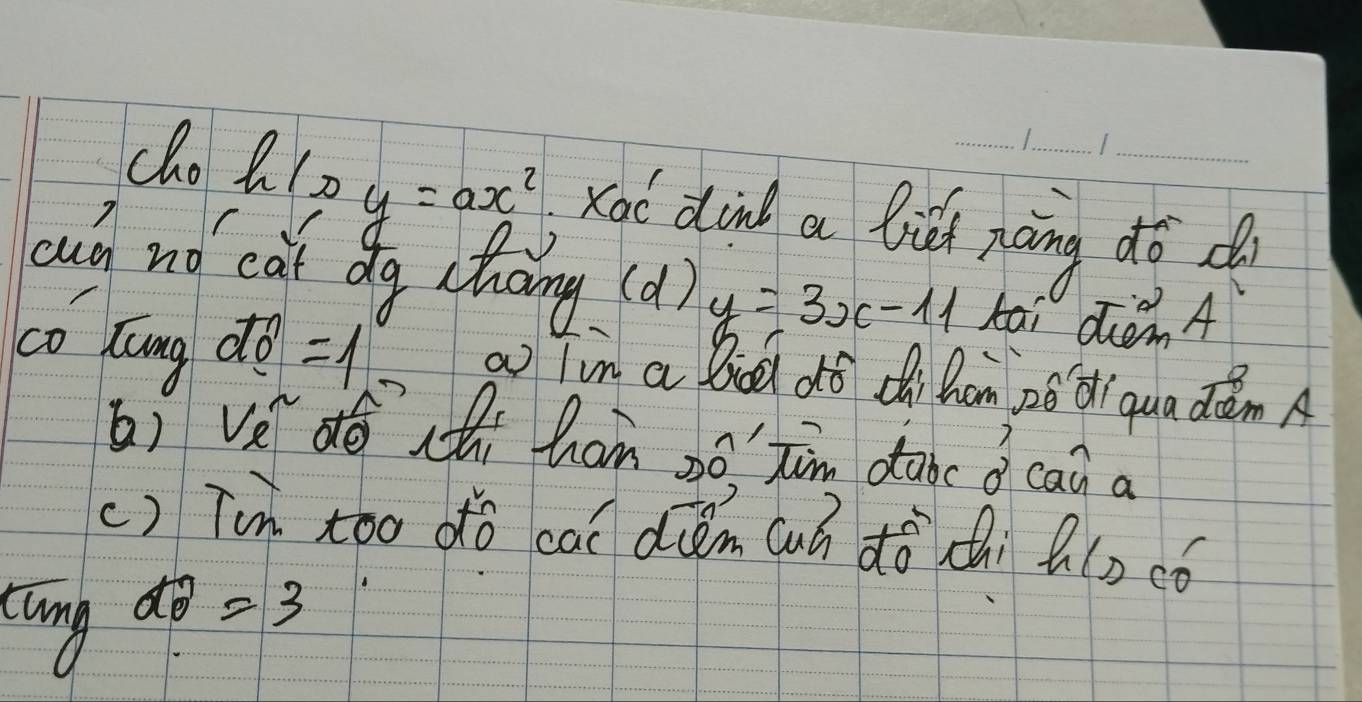 Cho h/s y = ax². Xác định a biết rằng đồ thị
của nó cắt đg thẳng (d) y = 3x - 11 tại điểm A
có tung độ = 1 a) Tìm a biết đồ thị hàm số đi qua điểm A
b) Vẽ đồ thị hàm số tìm đước ở câu a
c) Tìm toạ độ các điểm của đồ thị h/s có
tung độ = 3